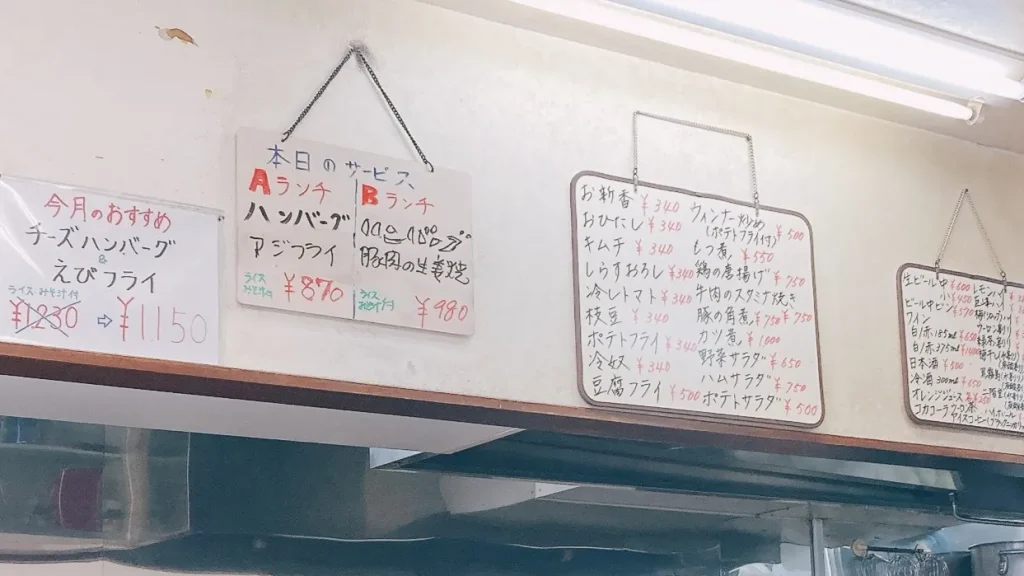 今月のおすすめ
チーズハンバーグ
&
えびフライ
ライス・みそ汁付
¥1230 ⇨ ¥1150
本日のサービス
Aランチ
ハンバーグ
アジフライ
ライス
みそ汁付
¥870
Bランチ
豚肉の生姜焼
ライス
みそ汁付
¥980
お新香 ¥340
おひたし ¥340
キムチ ¥340
しらすおろし ¥340
冷しトマト ¥340
枝豆 ¥340
ポテトフライ ¥340
冷奴 ¥340
豆腐フライ ¥500
ウィンナー炒め
(ポテトフライ付) ¥500
もつ煮 ¥550
鶏の唐揚げ ¥750
牛肉のスタミナ焼き
¥750
豚の角煮 ¥750
カツ煮 ¥1000
野菜サラダ ¥650
ハムサラダ ¥750
ポテトサラダ ¥500
生ビール 中 ¥600
小 ¥450
ビール中ビン ¥570
ワイン
白/赤 185ml
白/赤 375ml
日本酒 ¥500
冷酒 300ml ¥650
オレンジジュース
コカコーラ